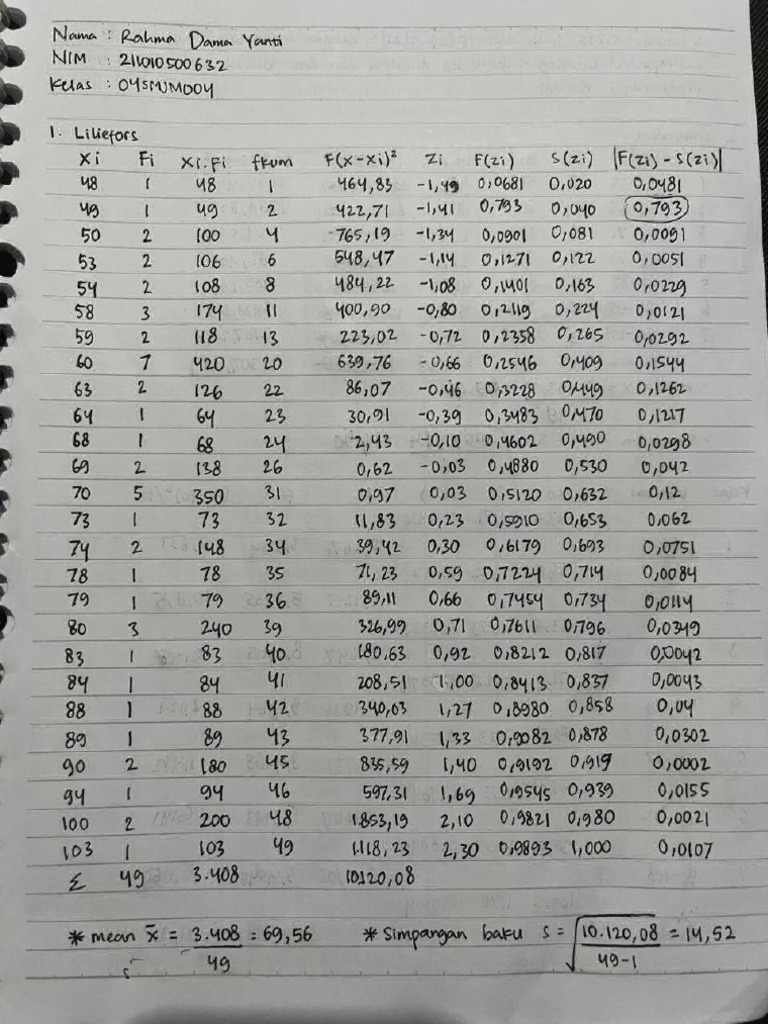 Nama : Rahma Dama Yanti
NIM : 211010500632
Kelas : 04SMJM004
1. Liliefors
Xi Fi Xi.Fi fkum F(x-xi)² Zi F(zi) S(zi) |F(zi) - S(zi)|
48 1 48 1 464,83 -1,49 0,0681 0,020 0,0481
49 1 49 2 422,71 -1,41 0,793 0,040 0,793
50 2 100 4 765,19 -1,34 0,0901 0,081 0,0091
53 2 106 6 548,47 -1,14 0,1271 0,122 0,0051
54 2 108 8 484,22 -1,08 0,1401 0,163 0,0229
58 3 174 11 400,90 -0,80 0,2119 0,224 0,0121
59 2 118 13 223,02 -0,72 0,2358 0,265 0,0292
60 7 420 20 639,76 -0,66 0,2546 0,409 0,1544
63 2 126 22 86,07 -0,46 0,3228 0,449 0,1262
64 1 64 23 30,91 -0,39 0,3483 0,470 0,1217
68 1 68 24 2,43 -0,10 0,4602 0,490 0,0298
69 2 138 26 0,62 -0,03 0,4880 0,530 0,042
70 5 350 31 0,97 0,03 0,5120 0,632 0,12
73 1 73 32 11,83 0,23 0,5910 0,653 0,062
74 2 148 34 39,42 0,30 0,6179 0,693 0,0751
78 1 78 35 71,23 0,59 0,7224 0,714 0,0084
79 1 79 36 89,11 0,66 0,7454 0,734 0,0114
80 3 240 39 326,99 0,71 0,7611 0,796 0,0349
83 1 83 40 180.63 0,92 0,8212 0,817 0,0042
84 1 84 41 208,51 1,00 0,8413 0,837 0,0043
88 1 88 42 340,03 1,27 0,8980 0,858 0,04
89 1 89 43 377,91 1,33 0,9082 0,878 0,0302
90 2 180 45 835,59 1,40 0,9192 0,919 0,0002
94 1 94 46 597,31 1,69 0,9545 0,939 0,0155
100 2 200 48 1.853,19 2,10 0,9821 0,980 0,0021
103 1 103 49 1.118,23 2,30 0,9893 1,000 0,0107
Σ 49 3.408 10.120,08
* mean x̄ = 3.408 / 49 = 69,56 * Simpangan baku S = √(10.120,08 / 49-1) = 14,52